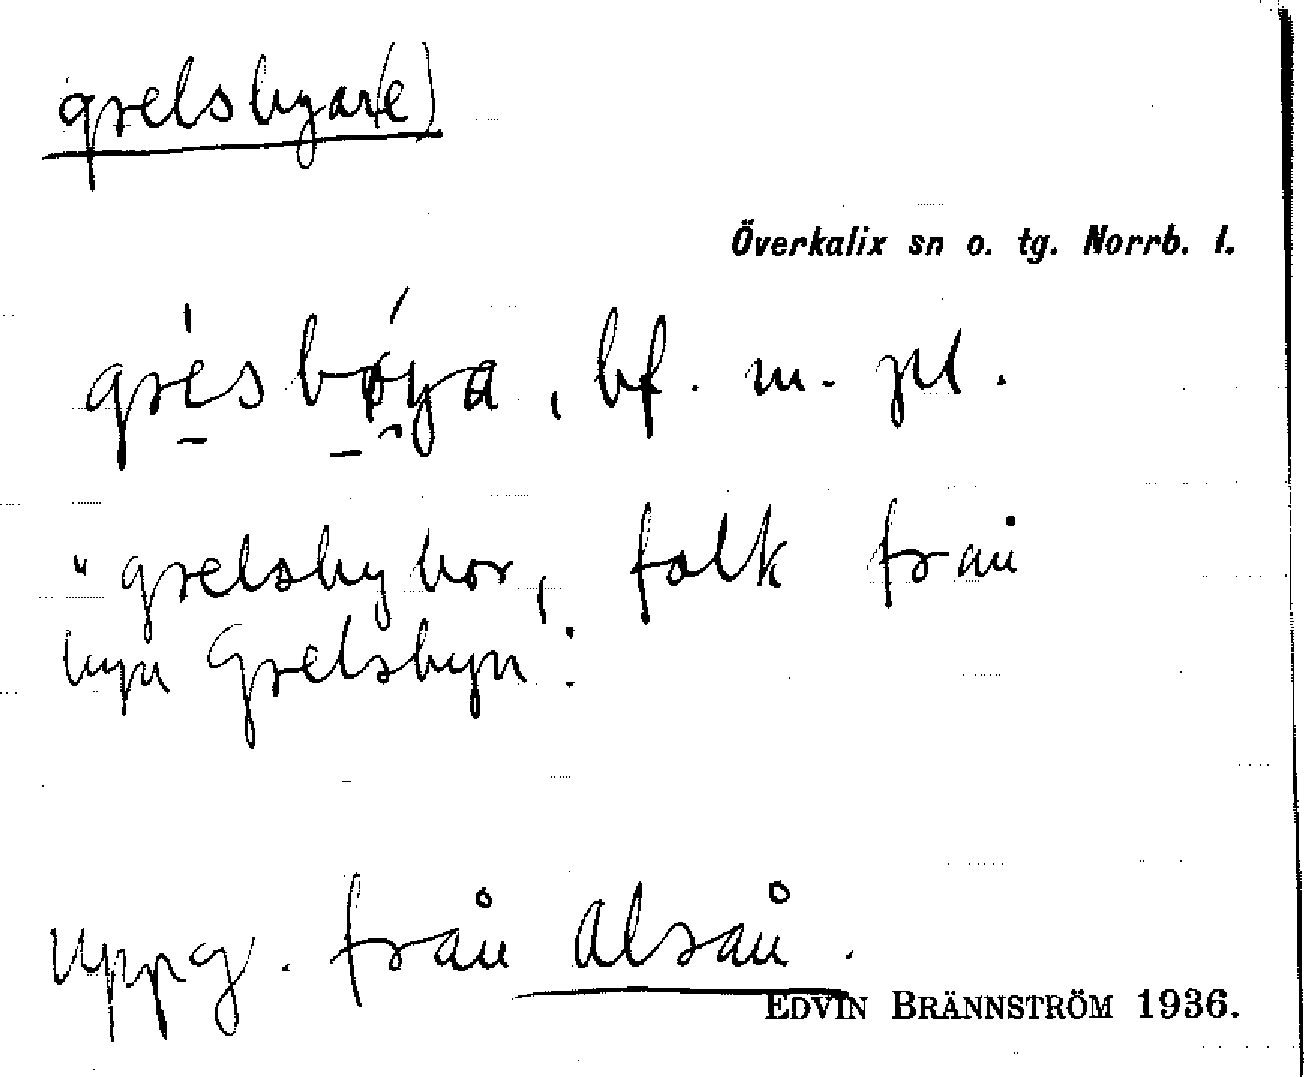 grelsbyar(e)
Överkalix sn o. tg. Norrb. l.
bf. m. pl.
"grelsbybor, folk från
byn Grelsbyn":
uppg. från Alsån.
EDVIN BRÄNNSTRÖM 1936.